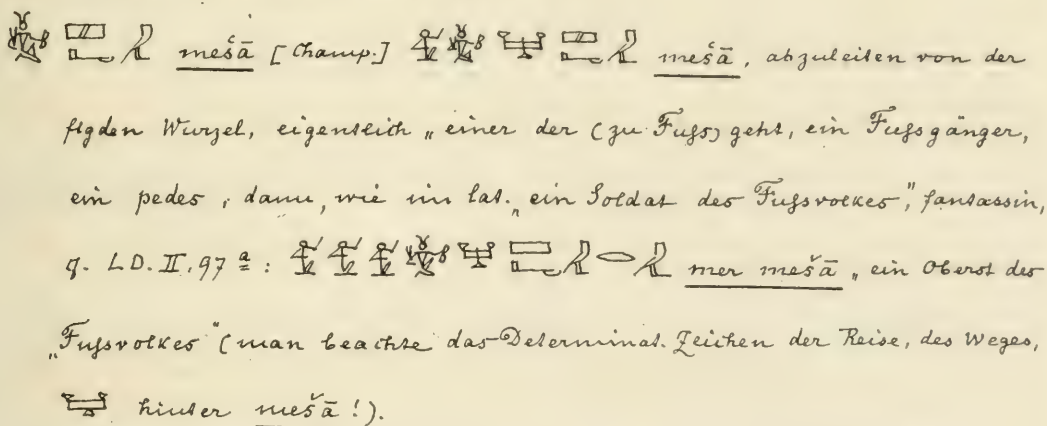 mešā [Champ.] mešā, abzuleiten von der
flgden Wurzel, eigentlich „einer der (zu Fuſs) geht, ein Fuſsgänger,
ein pedes, dann, wie im lat. „ein Soldat des Fuſsvolkes", fantassin,
cf. LD. II. 97 a: mer mešā „ein Oberst des
„Fuſsvolkes" (man beachte das Determinat. Zeichen der Reise, des Weges,
hinter mešā!).